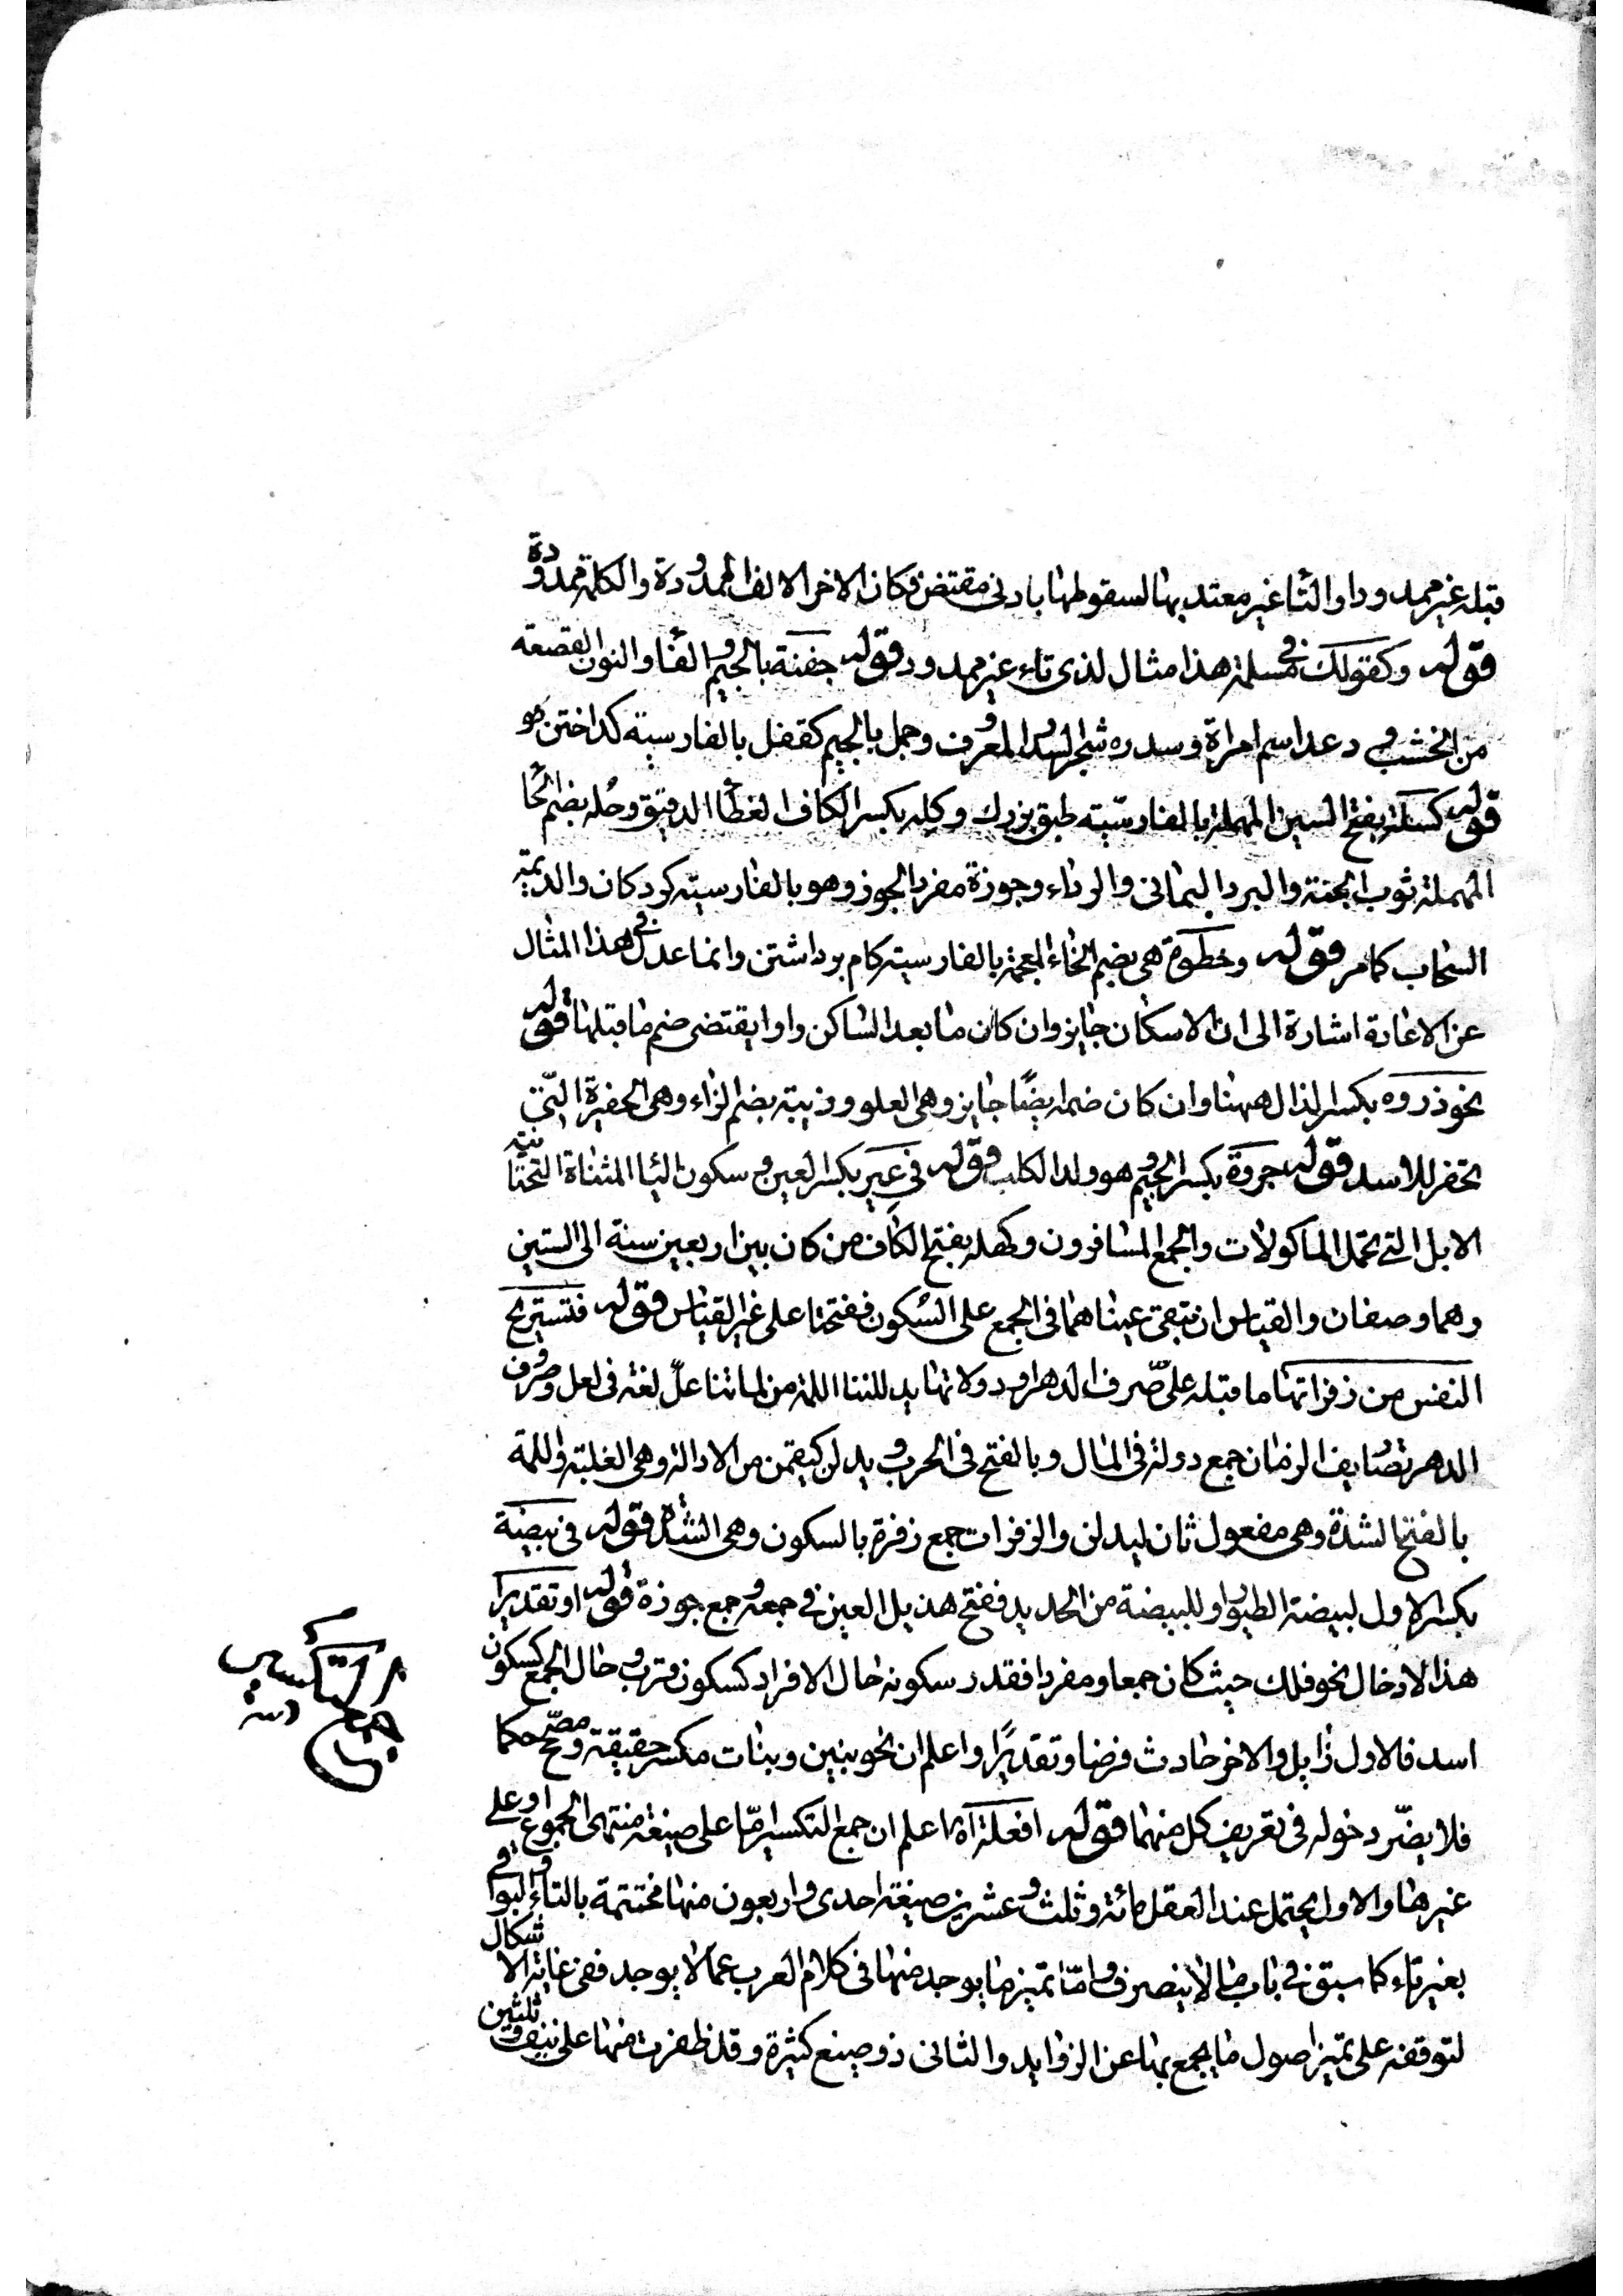 قبله غير ممدود او التا غير معتد بها لسقوطها بادنى مقتض فكان الاخر الالف الممدودة والكلمة ممدودة
قوله وكقولك في مسلمة هذا مثال لذى تاء غير ممدود قوله جفنة بالجيم والفا والنون القصعة
من الخشب و دعد اسم امراة وسدره شجر السدر المعروف وجمل بالجيم كقفل بالفارسية كداختن مو
قوله كسلة بفتح السين المهملة بالفارسيّة طبق بزرك وكِله بكسر الكاف الغطأ الدقيق وحُله بضم الحا
المهملة ثوب الجنة والبرد اليمانى والرداء وجوزة مفرد الجوز وهو بالفارسيّه كودكان والديمة
السحاب كما مر قوله وخطوة هى بضم الخاء المعجمة بالفارسية كام برداشتن وانما عدل في هذا المثال
عن الاعادة اشارة الى ان الاسكان جايز وان كان ما بعد الساكن واوا يقتضى ضم ما قبلها قوله
نحو ذروه بكسر لذال ههنا وان كان ضما ايضًا جايز وهى العلو وزبية بضم الزاء وهى الحفيرة التى
تحفر للاسد قوله جروة بكسر الجيم وهو ولد الكلب وقوله في عِيَر بكسر العين و سكون اليا المثناة التحتانية
الابل التى تحمل الماكولات والجمع المسافرون وكهله بفتح الكاف من كان بين اربعين سنة الى الستين
وهما وصفان والقياس ان تبقى عيناهما فى الجمع على السُكون ففتحتا على غير القياس قوله فتستريح
النفس من زفراتها ما قبله علّ صّرف الدهر او دولاتها يدللننا اللمة من لماتنا علّ لغة فى لعل وصروف
الدهر تصاريف الزمان جمع دولة فى المال وبالفتح فى الحرب و يدلن كيقمن من الادالة وهى الغلبة واللمة
بالفتح الشدة وهى مفعول ثان ليدلن والزفرات جمع زفرة بالسكون وهى الشدة قوله فى بيضة
بكسر الاول لبيضة الطيور او للبيضة من الحديد ففتح هذيل العين في جمعه و جمع جوزة قوله او تقديرا
هذا لادخال نحو فلك حيث كان جمعا و مفردا فقدر سكونه حال الافراد كسكون قرب و حال الجمع كسكون
اسد فالاول زايل والاخر حادث فرضا وتقديرًا واعلم ان نحو بنين وبنات مكسر حقيقة ومصحح حكما
فلا يضّر دخوله فى تعريف كل منهما قوله افعلة اه اعلم ان جمع التكسير امّا على صيغة منتهى الجموع او على
غيرها والاول يحتمل عند العقل مائة وثلث و عشرين صيغة احدى واربعون منها مختتمة بالتاء والبواقى
بغير تاء كما سبق في باب ما لا ينصرف و امّا تميز ما يوجد منها فى كلام العرب عما لا يوجد ففى غاية الاشكال
لتوقفه على تميز اصول ما يجمع بها عن الزوايد والثانى ذو صيغ كثيرة وقد ظفرت منها على نيف و ثلثين
جمع التكسير